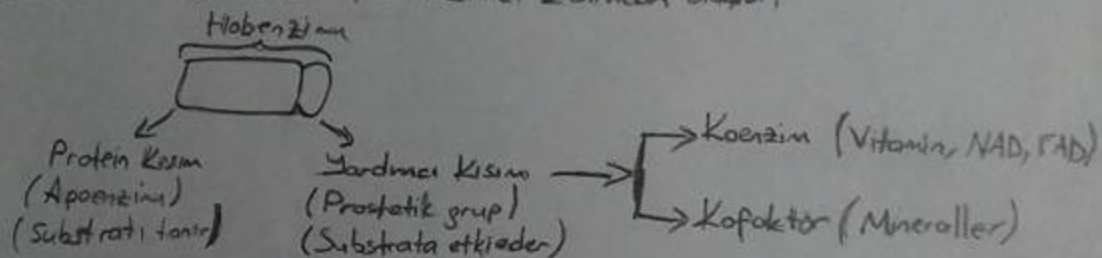 Hobenzim
Protein Kısım
(Apoenzim)
(Substratı tanır)
Yardımcı Kısım
(Prostetik grup)
(Substrata etkieder)
Koenzim (Vitamin, NAD, FAD)
Kofaktör (Mineraller)